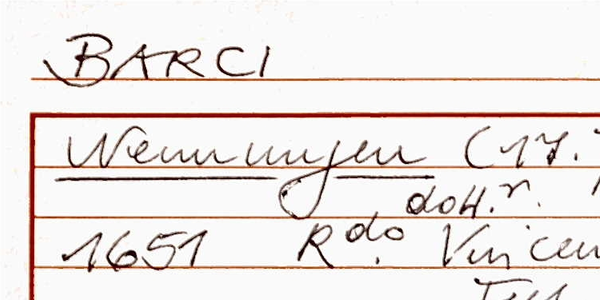 BARCI
Nennungen (17.
dott.r.
1651 Rdo Vincen